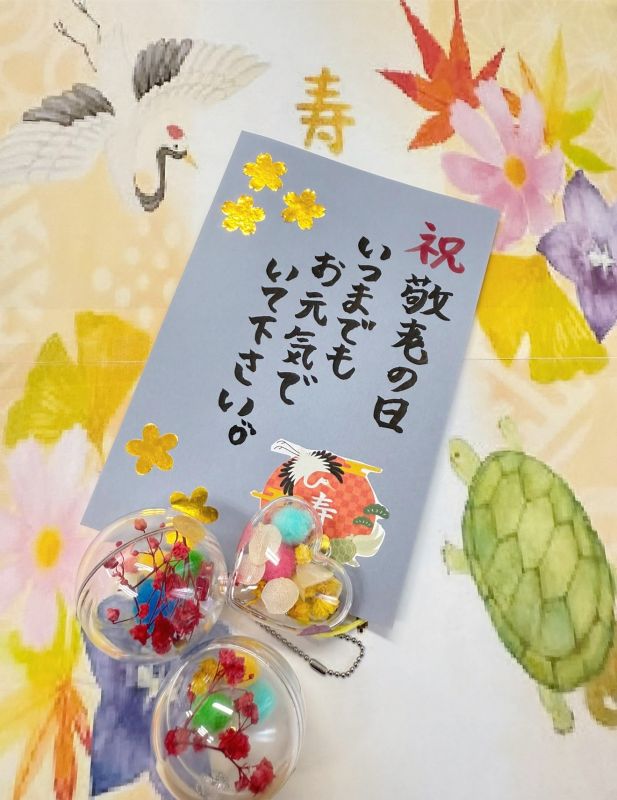 寿
祝
敬老の日
いつまでも
お元気で
いて下さい。
寿